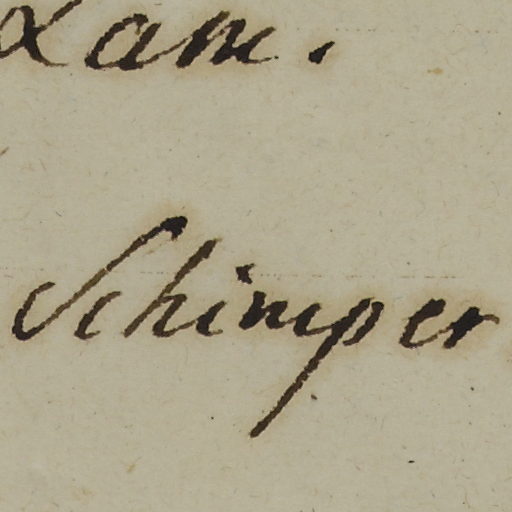 Lam.
Schimper